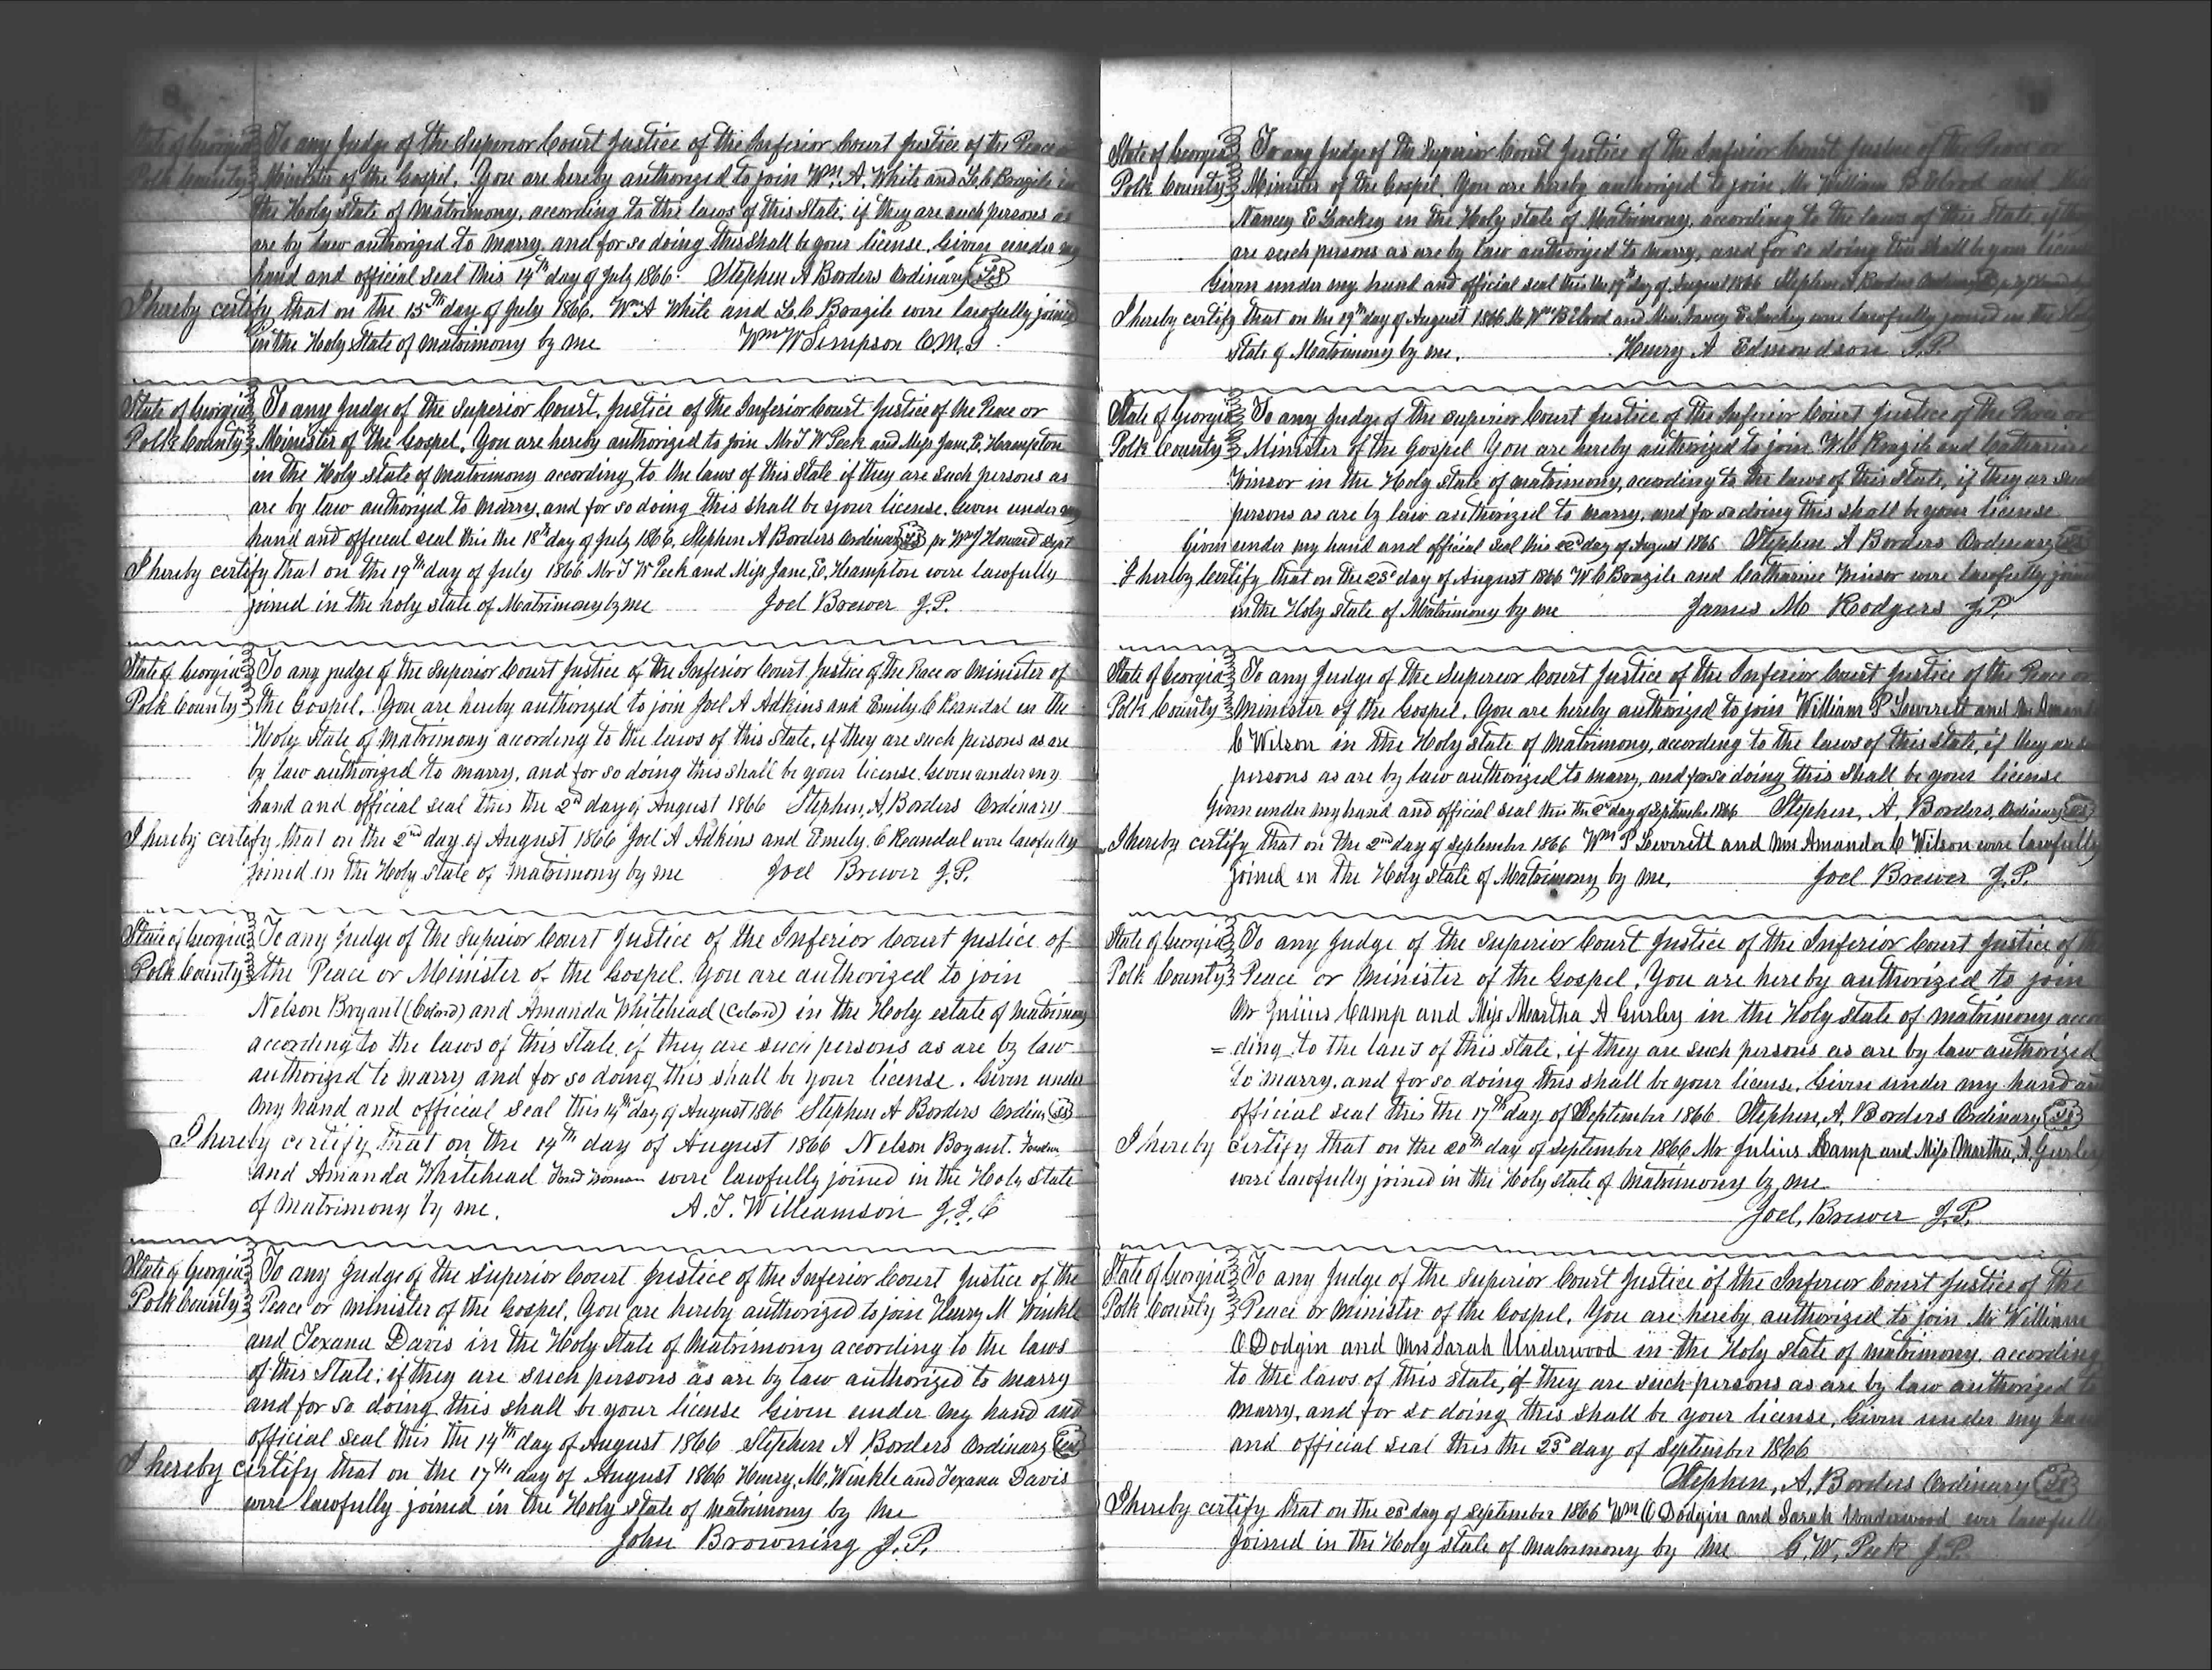 State of Georgia To any Judge of the Superior Court Justice of the Inferior Court Justice of the Peace or
Polk County Minister of the Gospel. You are hereby authorized to join Wm. A. White and L. C. Brazile in
the Holy State of Matrimony, according to the laws of this State, if they are such persons as
are by law authorized to marry, and for so doing this shall be your license. Given under my
hand and official seal this 14th day of July 1866. Stephen A Borders Ordinary LS
I hereby certify that on the 15th day of July 1866. Wm A White and L. C Brazile were lawfully joined
in the Holy State of Matrimony by me Wm W Simpson O.M.G.
State of Georgia To any Judge of the Superior Court, Justice of the Inferior Court Justice of the Peace or
Polk County Minister of the Gospel. You are hereby authorized to join Mr J W Peek and Miss Jane, E, Hampton
in the Holy State of Matrimony according to the laws of this State if they are such persons as
are by law authorized to marry, and for so doing this shall be your license. Given under my
hand and official seal this the 18th day of July 1866, Stephen A Borders Ordinary LS pr Wm J Howard Dept
I hereby certify that on the 19th day of July 1866 Mr J W Peek and Miss Jane, E, Hampton were lawfully
joined in the holy state of Matrimony by me Joel Brewer J.P.
State of Georgia To any judge of the Superior Court Justice of the Inferior Court Justice of the Peace or Minister of
Polk County the Gospel. You are hereby authorized to join Joel A Adkins and Emily C Randal in the
Holy State of Matrimony according to the laws of this State, if they are such persons as are
by law authorized to marry, and for so doing this shall be your license. Given under my
hand and official seal this the 2nd day of August 1866 Stephen, A, Borders Ordinary
I hereby certify that on the 2nd day of August 1866 Joel A Adkins and Emily. C Randal were lawfully
joined in the Holy State of Matrimony by me Joel Brewer J.P.
State of Georgia To any Judge of the Superior Court Justice of the Inferior Court Justice of
Polk County the Peace or Minister of the Gospel. You are authorized to join
Nelson Bryant (Colord) and Amanda Whitehead (Colord) in the Holy estate of matrimony
according to the laws of this State, if they are such persons as are by law
authorized to marry and for so doing this shall be your license. Given under
my hand and official seal this 14th day of August 1866 Stephen A Borders Ordin LS
I hereby certify that on the 14th day of August 1866 Nelson Bryant.
and Amanda Whitehead woman were lawfully joined in the Holy State
of Matrimony by me. A. T. Williamson J.I.C
State of Georgia To any Judge of the Superior Court Justice of the Inferior Court Justice of the
Polk County Peace or minister of the Gospel. You are hereby authorized to join Henry M Winkle
and Texana Davis in the Holy State of Matrimony according to the laws
of this State; if they are such persons as are by law authorized to marry
and for so doing this shall be your license Given under my hand and
official seal this the 14th day of August 1866 Stephen A Borders Ordinary LS
I hereby certify that on the 17th day of August 1866 Henry, M, Winkle and Texana Davis
were lawfully joined in the Holy State of Matrimony by me
John Browning J.P.
State of Georgia To any Judge of the Superior Court Justice of the Inferior Court Justice of the Peace or
Polk County Minister of the Gospel. You are hereby authorized to join Mr William B Elrod and
Nancy E Lackey in the Holy State of Matrimony, according to the laws of this State if they
are such persons as are by law authorized to marry, and for so doing this shall be your license
Given under my hand and official seal this the 17th day of August 1866 Stephen A Borders Ordinary
I hereby certify that on the 19th day of August 1866 Mr Wm B Elrod and Miss Nancy E Lackey were lawfully joined in the Holy
State of Matrimony by me. Henry A Edmondson J.P.
State of Georgia To any Judge of the Superior Court Justice of the Inferior Court Justice of the Peace or
Polk County Minister of the Gospel You are hereby authorized to join W. C Brazile and Catharine
Winsor in the Holy State of matrimony, according to the laws of this State, if they are such
persons as are by law authorized to marry, and for so doing this shall be your license
Given under my hand and official seal this 22d day of August 1866 Stephen A Borders Ordinary LS
I hereby Certify that on the 23d day of August 1866 W. C Brazile and Catharine Winsor were lawfully joined
in the Holy state of Matrimony by me James M Rodgers J.P.
State of Georgia To any Judge of the Superior Court Justice of the Inferior Court Justice of the Peace or
Polk County Minister of the Gospel. You are hereby authorized to join William P Leverett and Mrs Amanda
C Wilson in the Holy State of Matrimony, according to the laws of this State, if they are such
persons as are by law authorized to marry, and for so doing this shall be your license
Given under my hand and official seal this the 2d day of September 1866 Stephen, A, Borders, Ordinary LS
I hereby certify that on the 2nd day of September 1866 Wm P Leverett and Mrs Amanda C Wilson were lawfully
joined in the Holy State of Matrimony by me. Joel Brewer J.P.
State of Georgia To any Judge of the Superior Court Justice of the Inferior Court Justice of the
Polk County Peace or minister of the Gospel, You are hereby authorized to join
Mr Julius Camp and Miss Martha A Gurley in the Holy State of matrimony accor
=ding to the laws of this State, if they are such persons as are by law authorized
to marry, and for so doing this shall be your license. Given under my hand and
official seal this the 17th day of September 1866. Stephen, A, Borders Ordinary LS
I hereby certify that on the 20th day of September 1866 Mr Julius Camp and Miss Martha, A, Gurley
were lawfully joined in the Holy State of Matrimony by me
Joel, Brewer J.P.
State of Georgia To any Judge of the Superior Court Justice of the Inferior Court Justice of the
Polk County Peace or Minister of the Gospel, You are hereby authorized to join Mr William
O Dodgin and Mrs Sarah Underwood in the Holy State of matrimony, according
to the laws of this State, if they are such persons as are by law authorized to
marry, and for so doing this shall be your license, Given under my hand
and official seal this the 23d day of September 1866
Stephen, A, Borders Ordinary LS
I hereby certify that on the 23d day of September 1866 Wm O Dodgin and Sarah Underwood were lawfully
Joined in the Holy State of Matrimony by me G. W. Peek J.P.